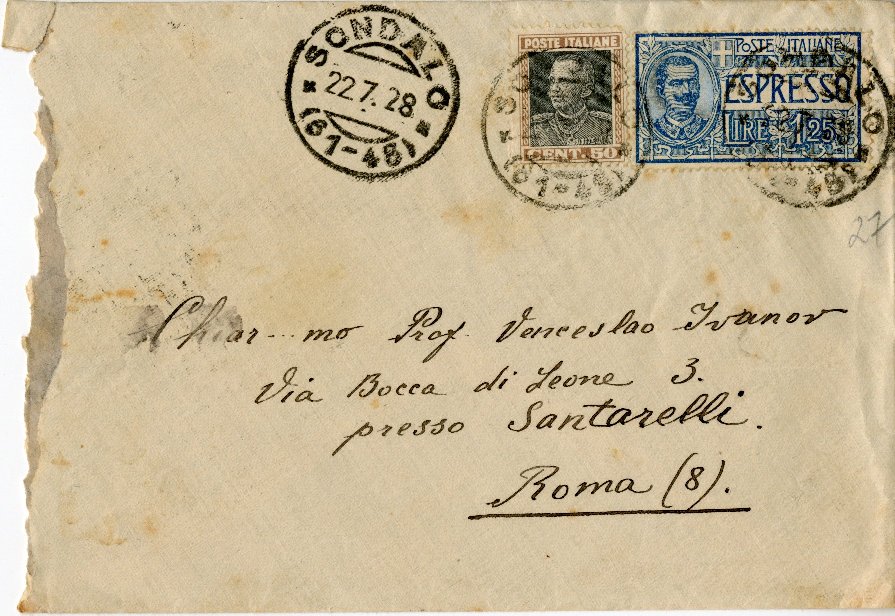 SONDALO
22.7.28
(61-48)
POSTE ITALIANE
CENT. 50
POSTE ITALIANE
ESPRESSO
LIRE 1,25
27
Chiar-mo Prof. Venceslao Ivanov
Via Bocca di Leone 3.
presso Santarelli.
Roma (8).